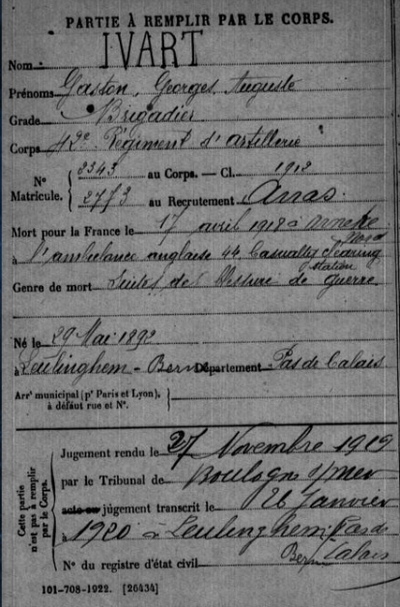 PARTIE À REMPLIR PAR LE CORPS.
Nom IVART
Prénoms Gaston, Georges, Auguste
Grade Brigadier
Corps 42e Régiment d'artillerie
N° Matricule. { 2343 au Corps. — Cl. 1912
2773 au Recrutement Arras.
Mort pour la France le 17 avril 1918 à Arneke
Nord
à l'ambulance anglaise 44 Casualty Clearing
station
Genre de mort Suites de Blessure de Guerre
Né le 29 Mai 1892
à Leulinghem-Bernes Département Pas de Calais
Arrt municipal (pr Paris et Lyon), à défaut rue et N°. }
Cette partie n'est pas à remplir par le Corps.
Jugement rendu le 27 Novembre 1919
par le Tribunal de Boulogne s/mer
acte ou jugement transcrit le 26 Janvier
à 1920 à Leulinghem Pas de
Bern Calais
N° du registre d'état civil
101-708-1922. [26434]